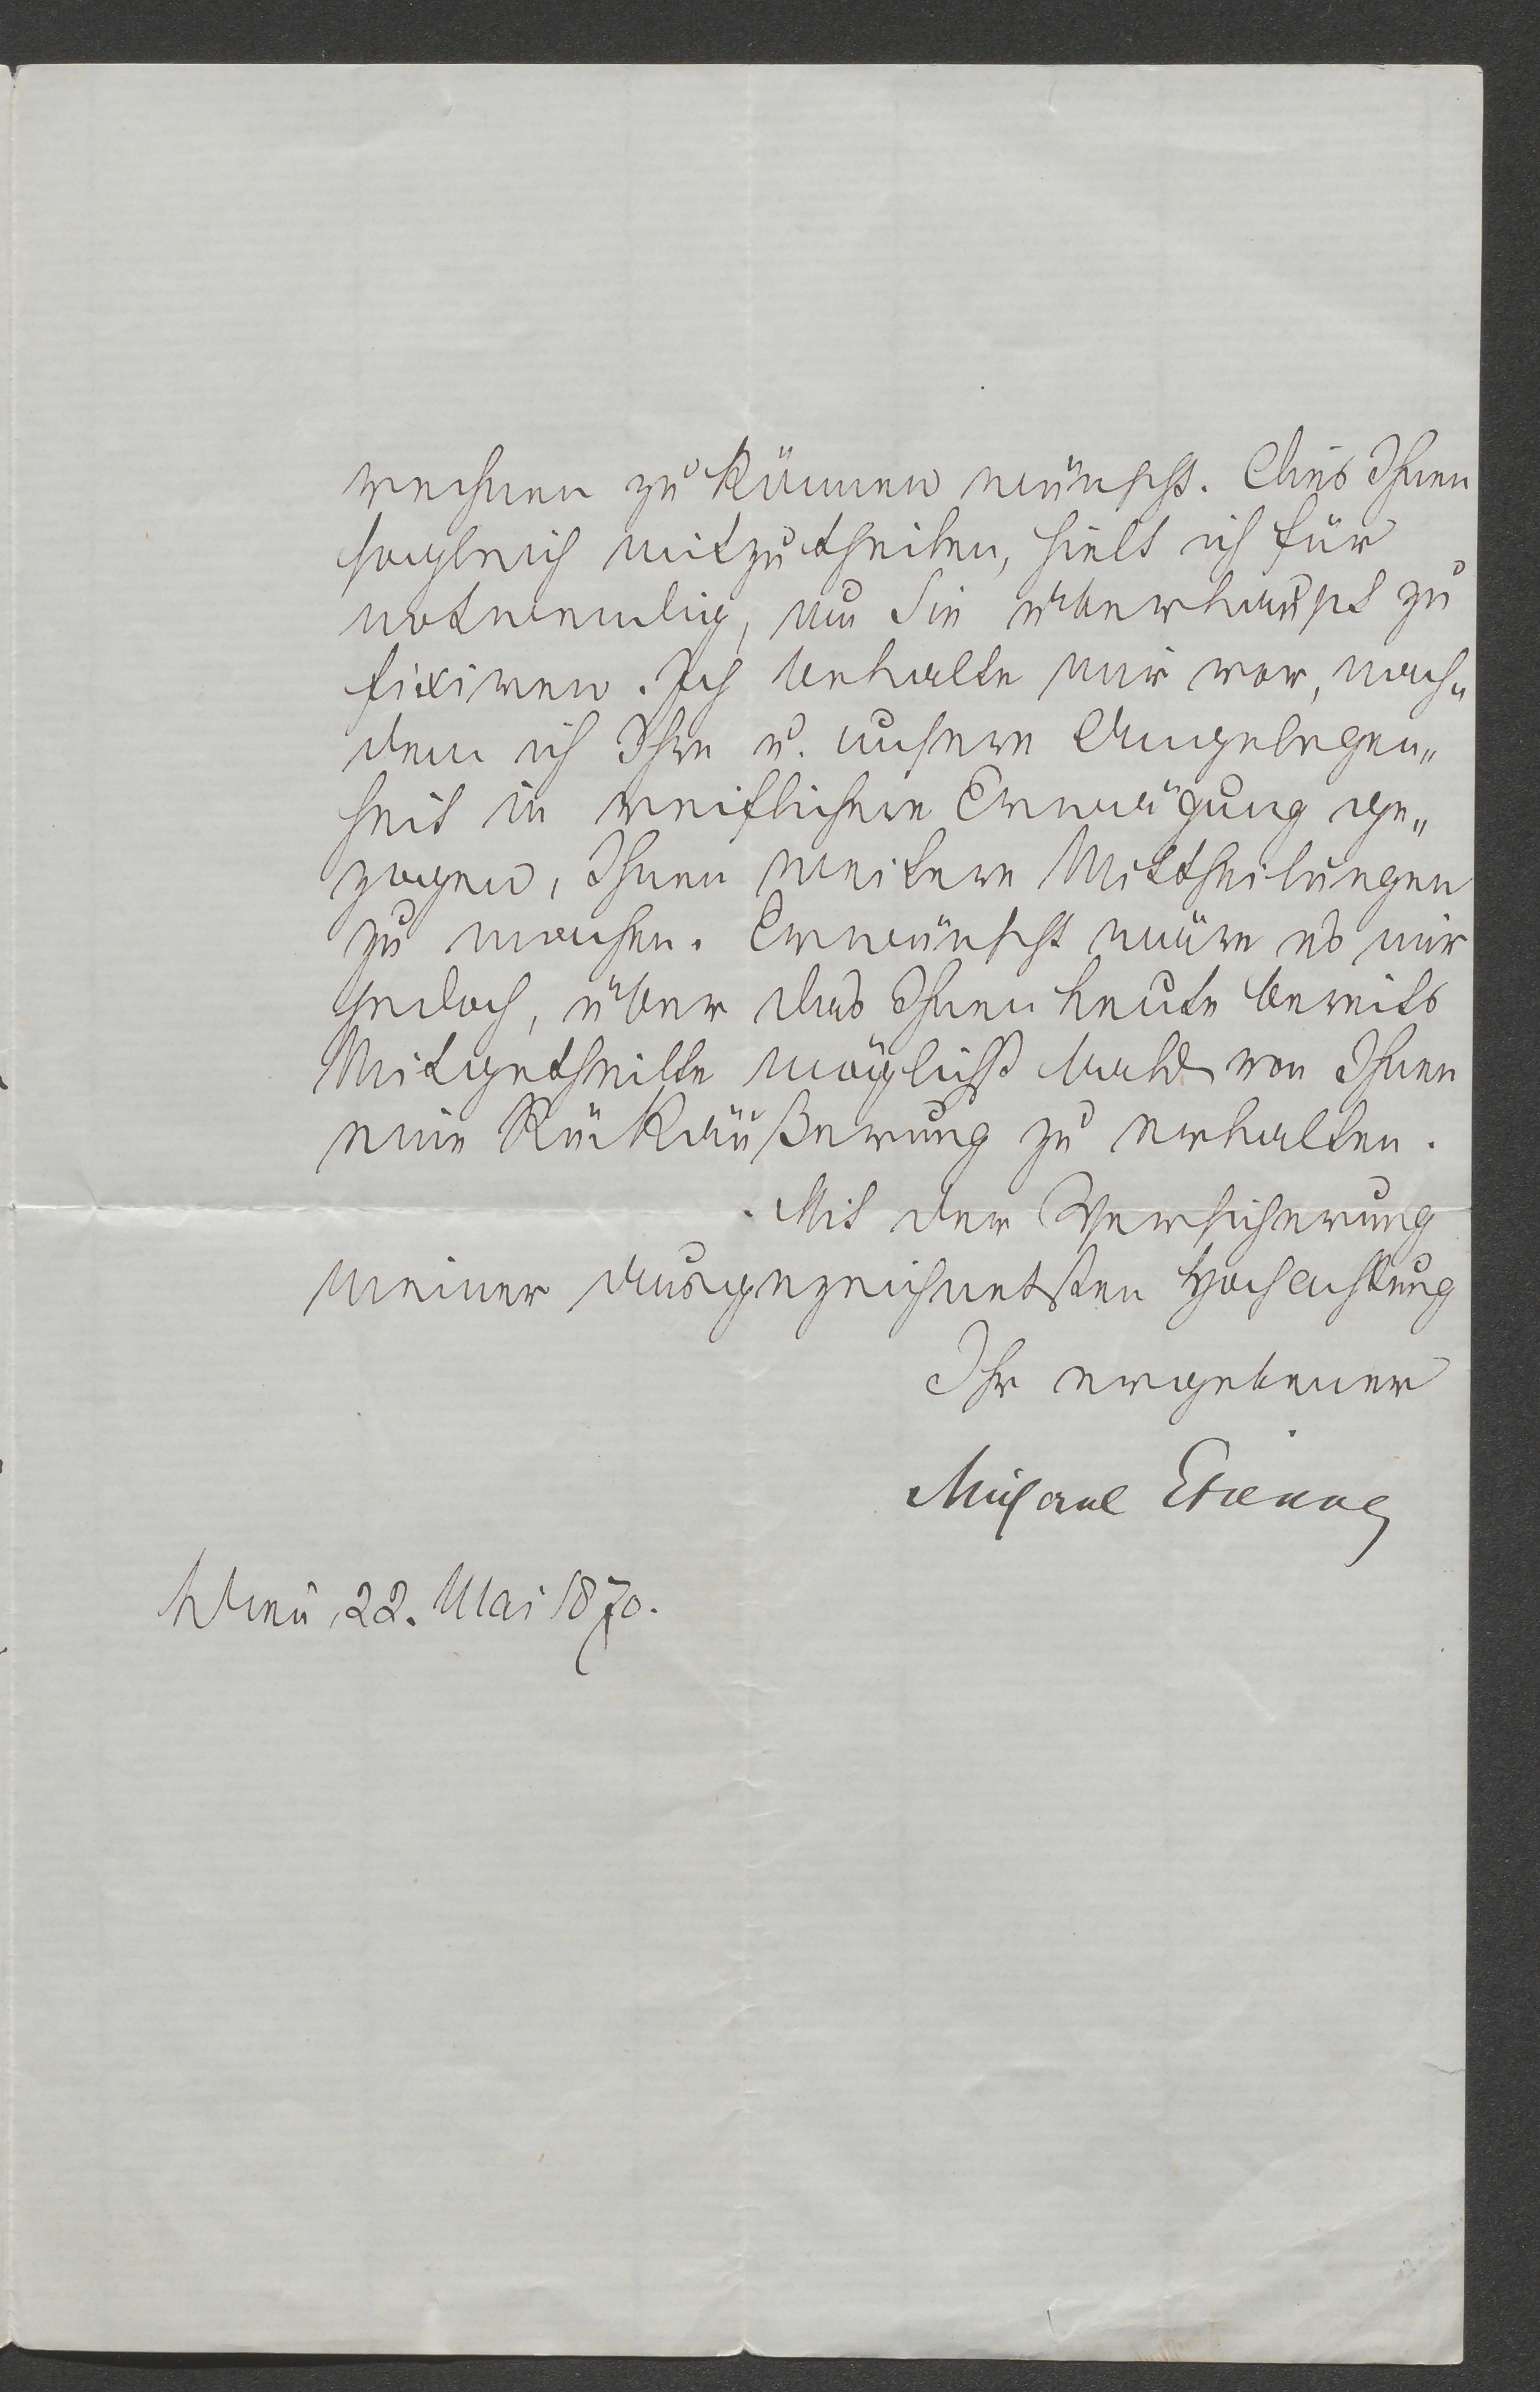 rechnen zu können wünscht. Dies Ihnen
sogleich mitzutheilen, hielt ich für
notwendig, um Sie überhaupt zu
fixiren. Ich behalte mir vor, nach„
dem ich Ihre u. unsere Angelegen„
heit in reiflichere Erwägung ge„
zogen, Ihnen weitere Mittheilungen
zu machen. Erwünscht wäre es mir
jedoch, über das Ihnen heute bereits
Mitgetheilte möglichst bald von Ihnen
eine Rückäußerung zu erhalten.
Mit der Versicherung
meiner ausgezeichnetsten Hochachtung
Ihr ergebener
Michael Etienne
Wien 22. Mai 1870.